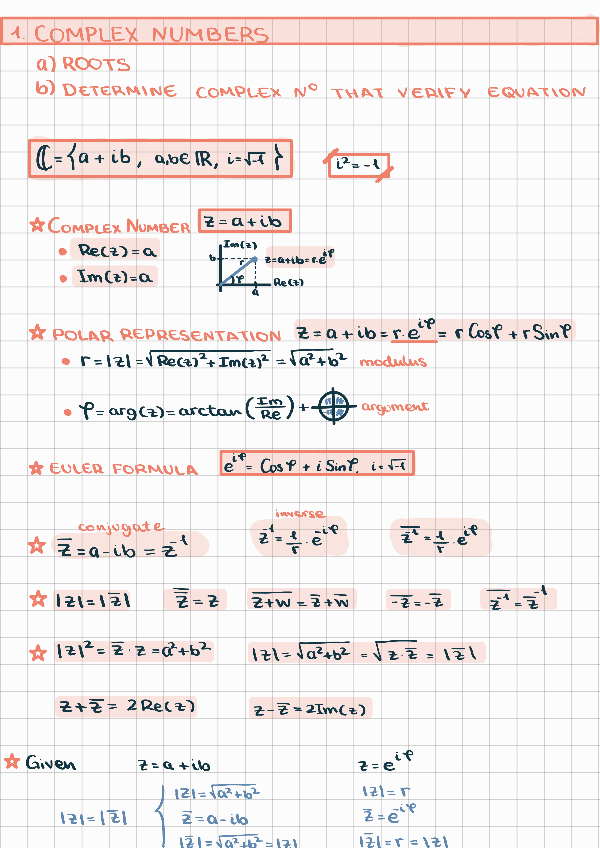 1. COMPLEX NUMBERS
a) ROOTS
b) DETERMINE COMPLEX Nº THAT VERIFY EQUATION
ℂ = { a + ib , a,b ∈ ℝ, i = √-1 } i² = -1
☆ COMPLEX NUMBER z = a + ib
• Re(z) = a
• Im(z) = a
Im(z)
b r z = a+ib = r·e^{iφ}
φ Re(z)
a
☆ POLAR REPRESENTATION z = a + ib = r·e^{iφ} = r Cosφ + r Sinφ
• r = |z| = √(Re(z)² + Im(z)²) = √(a² + b²) modulus
• φ = arg(z) = arctan (Im/Re) + argument
☆ EULER FORMULA e^{iφ} = Cosφ + i Sinφ, i = √-1
conjugate inverse
☆ z̅ = a - ib = z⁻¹ z⁻¹ = 1/r · e^{-iφ} \overline{z⁻¹} = 1/r · e^{iφ}
☆ |z| = |z̅| \overline{z̅} = z \overline{z+w} = z̅ + w̅ \overline{-z} = -z̅ \overline{z⁻¹} = z̅⁻¹
☆ |z|² = z̅ · z = a² + b² |z| = √(a² + b²) = √(z · z̅) = |z̅|
z + z̅ = 2Re(z) z - z̅ = 2Im(z)
☆ Given z = a + ib z = e^{iφ}
|z| = √(a² + b²) |z| = r
|z| = |z̅| { z̅ = a - ib z̅ = e^{-iφ}
|z̅| = √(a² + b²) = |z| |z̅| = r = |z|